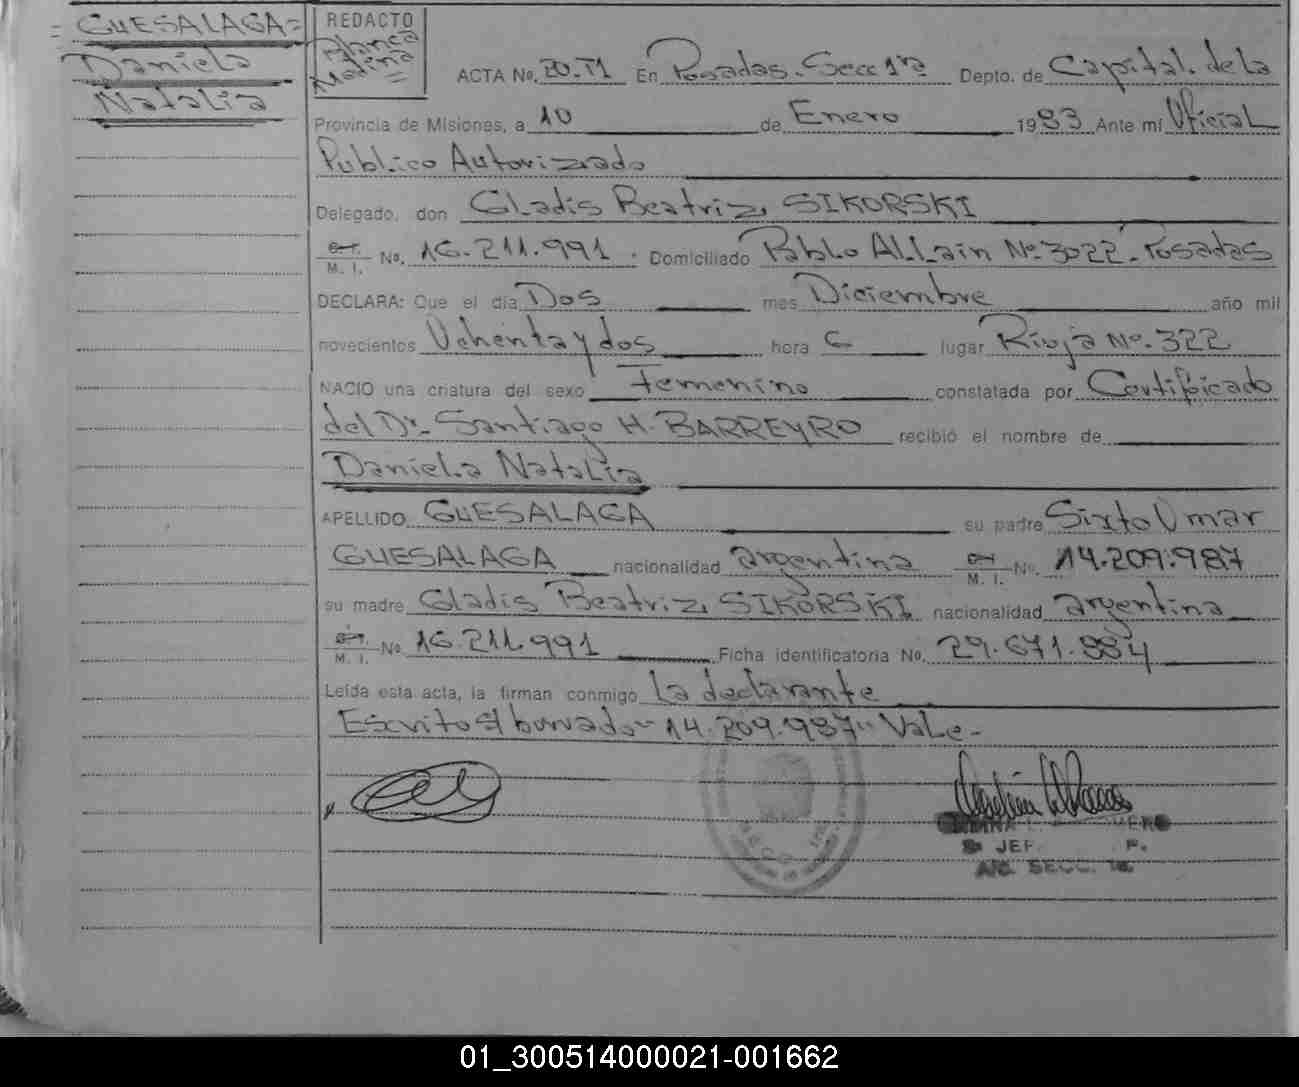 = GUESALAGA =
Daniela
Natalia
REDACTO
Blanca
Medina
=
ACTA No. 20.T1 En Posadas. Secc 1ra Depto. de Capital. de la
Provincia de Misiones, a 10 de Enero 1983 Ante mí Oficial
Publico Autorizado
Delegado, don Gladis Beatriz SIKORSKI
M. I. No. 16.211.991. Domiciliado Pablo Allain Nº 3022. Posadas
DECLARA: Que el día Dos mes Diciembre año mil
novecientos Ochenta y dos hora 6 lugar Rioja Nº. 322
NACIO una criatura del sexo Femenino constatada por Certificado
del Dr. Santiago H. BARREYRO recibió el nombre de
Daniela Natalia
APELLIDO GUESALAGA su padre Sixto Omar
GUESALAGA nacionalidad argentina M. I. No. 14.209.987
su madre Gladis Beatriz SIKORSKI nacionalidad argentina
M. I. No 16.211.991 Ficha identificatoria No. 29.671.884
Leída esta acta, la firman conmigo la declarante
Escrito s/ borrado "14.209.987" Vale.-
JEF. P.
A/C. SECC. 1a.
01_300514000021-001662